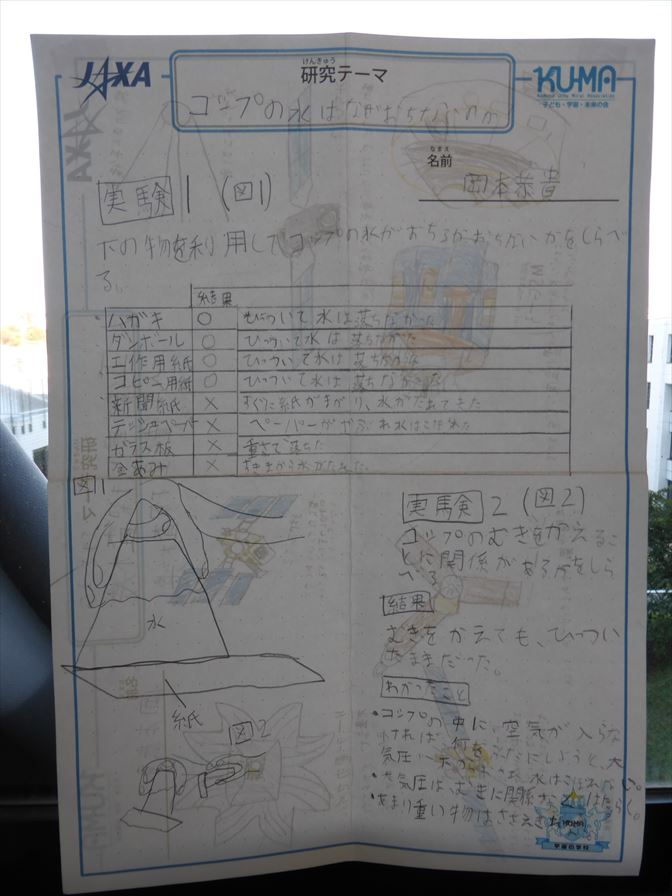 JAXA
けんきゅう
研究テーマ
KUMA
子ども・宇宙・未来の会
コップの水はなぜおちないのか
なまえ
名前
岡本恭昔
実験1 (図1)
下の物を利用してコップの水がおちるかおちないかをしらべ
る。
結果
ハガキ ○ ひっついて水は落ちなかった
ダンボール ○ ひっついて水は落ちなかった
工作用紙 ○ ひっついて水は落ちなかった
コピー用紙 ○ ひっついて水は落ちなかった
新聞紙 × すぐに紙がまがり、水がたれてきた
ティシュペーパー × ペーパーがやぶれ水はこぼれた
ガラス板 × 重さで落ちた
金あみ × すきまから水がたれた。
図1
水
紙
図2
実験2 (図2)
コップのむきをかえるこ
とに関係があるかをしら
べる
結果
むきをかえても、ひっつい
たままだった。
わかったこと
・コップの中に、空気が入らな
ければ、何をふたにしようと、大
気圧 水はこぼれない。
・大気圧は、むきに関係なくはたらく。
・あまり重い物はささえき
KUMA
宇宙の学校